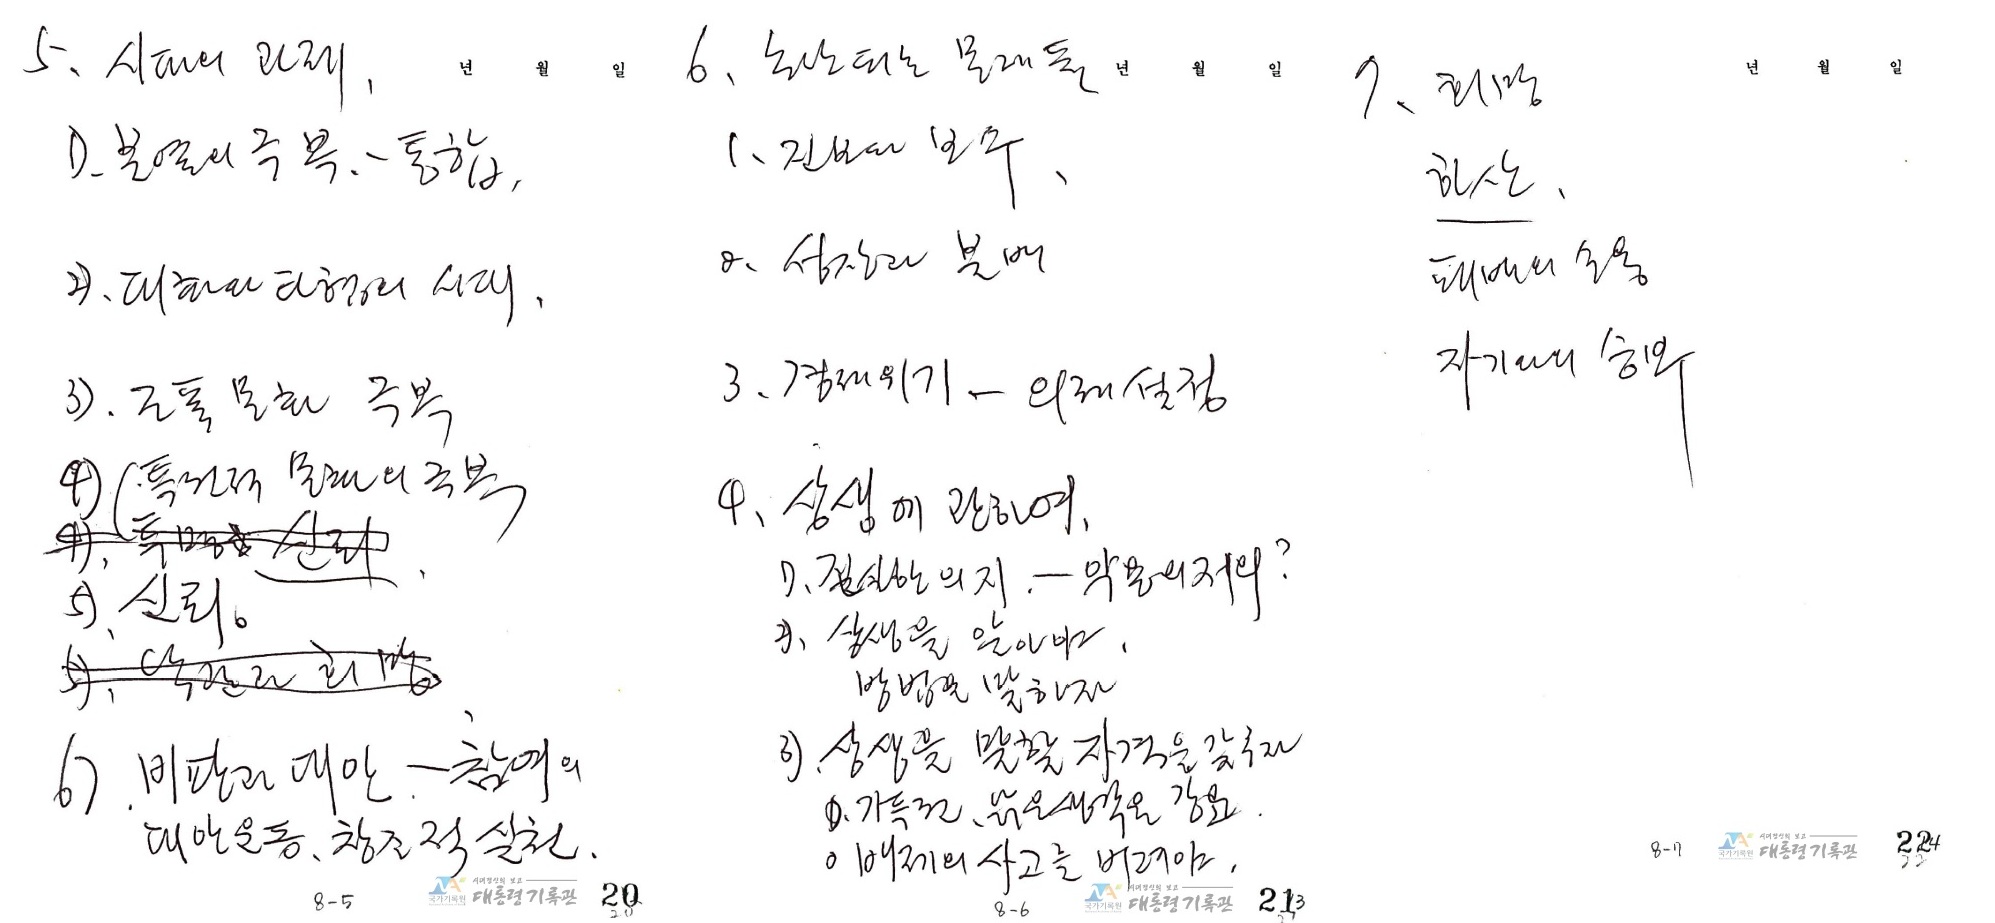 5. 시대의 과제.
년 월 일
1). 분열의 극복. - 통합.
2). 대화와 타협의 시대.
3). 군통문화 극복
4) (특권적 문제의 극복
신뢰
5). 신뢰.
5). 낙관과 희망
6). 비판과 대안 - 참여의
대안운동, 창조적 실천.
8-5
국가기록원 대통령기록관
20
6. 논란되는 문제들
년 월 일
1. 진보와 보수.
2. 성장과 분배
3. 경제위기 - 의제설정
4. 상생에 관하여.
1). 진실한 의지. -
2). 상생을 알아야.
방법을 말하자
3). 상생을 말할 자격을 갖추자
0. 기득권, 낡은생각은 강요.
0 배제의 사고를 버려야.
8-6
국가기록원 대통령기록관
21
7. 희망
년 월 일
한산.
패배의 수용
자기와의 승부
8-7
국가기록원 대통령기록관
22